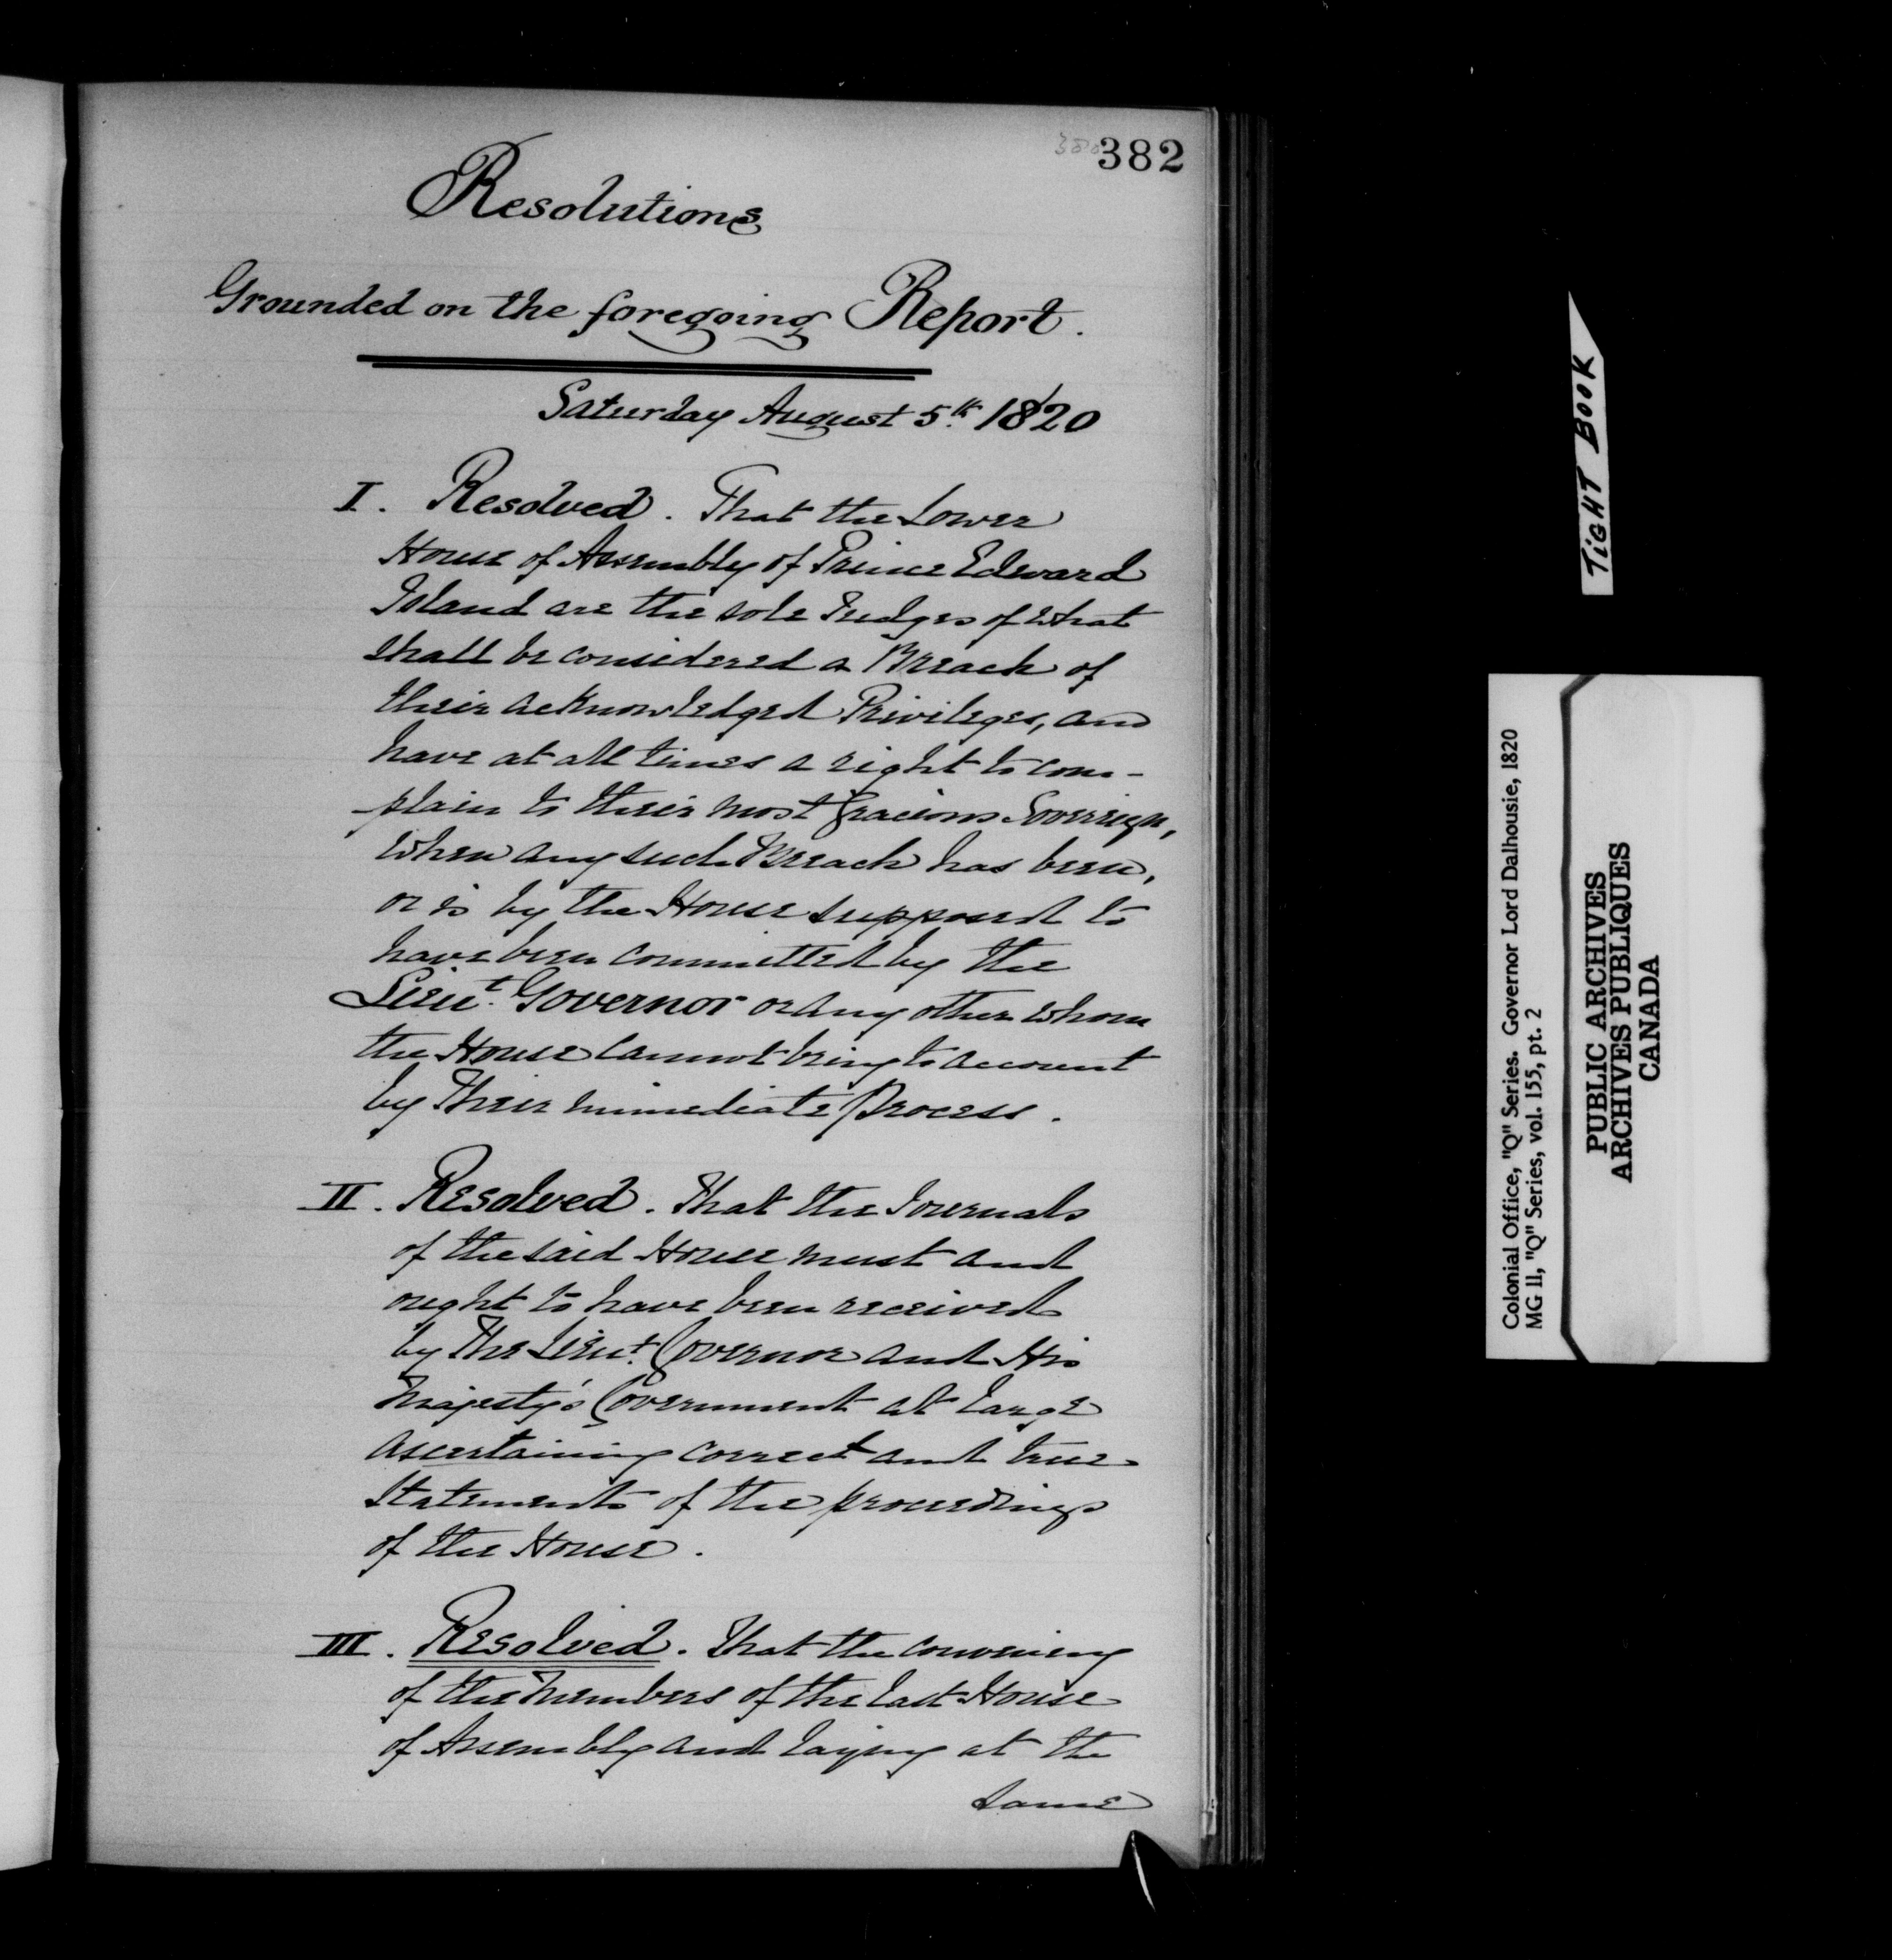 382
Resolutions
Grounded on the foregoing Report.
Saturday August 5th. 1820
I. Resolved. That the Lower
House of Assembly of Prince Edward
Island are the sole Judges of what
shall be considered a Breach of
their acknowledged Privileges, and
have at all times a right to com-
-plain to their most Gracious Sovereign,
when any such Breach has been,
or is by the House supposed to
have been committed by the
Lieut. Governor or any other whom
the House cannot bring to account
by Their immediate Process.
II. Resolved. That the Journals
of the said House must and
ought to have been received
by The Lieut. Governor and His
Majesty's Government at large
ascertaining correct and true
Statements of the proceedings
of the House.
III. Resolved. That the convening
of the Members of the last House
of Assembly and laying at the
same
TIGHT BOOK
Colonial Office, "Q" Series. Governor Lord Dalhousie, 1820
MG 11, "Q" Series, vol. 155, pt. 2
PUBLIC ARCHIVES
ARCHIVES PUBLIQUES
CANADA